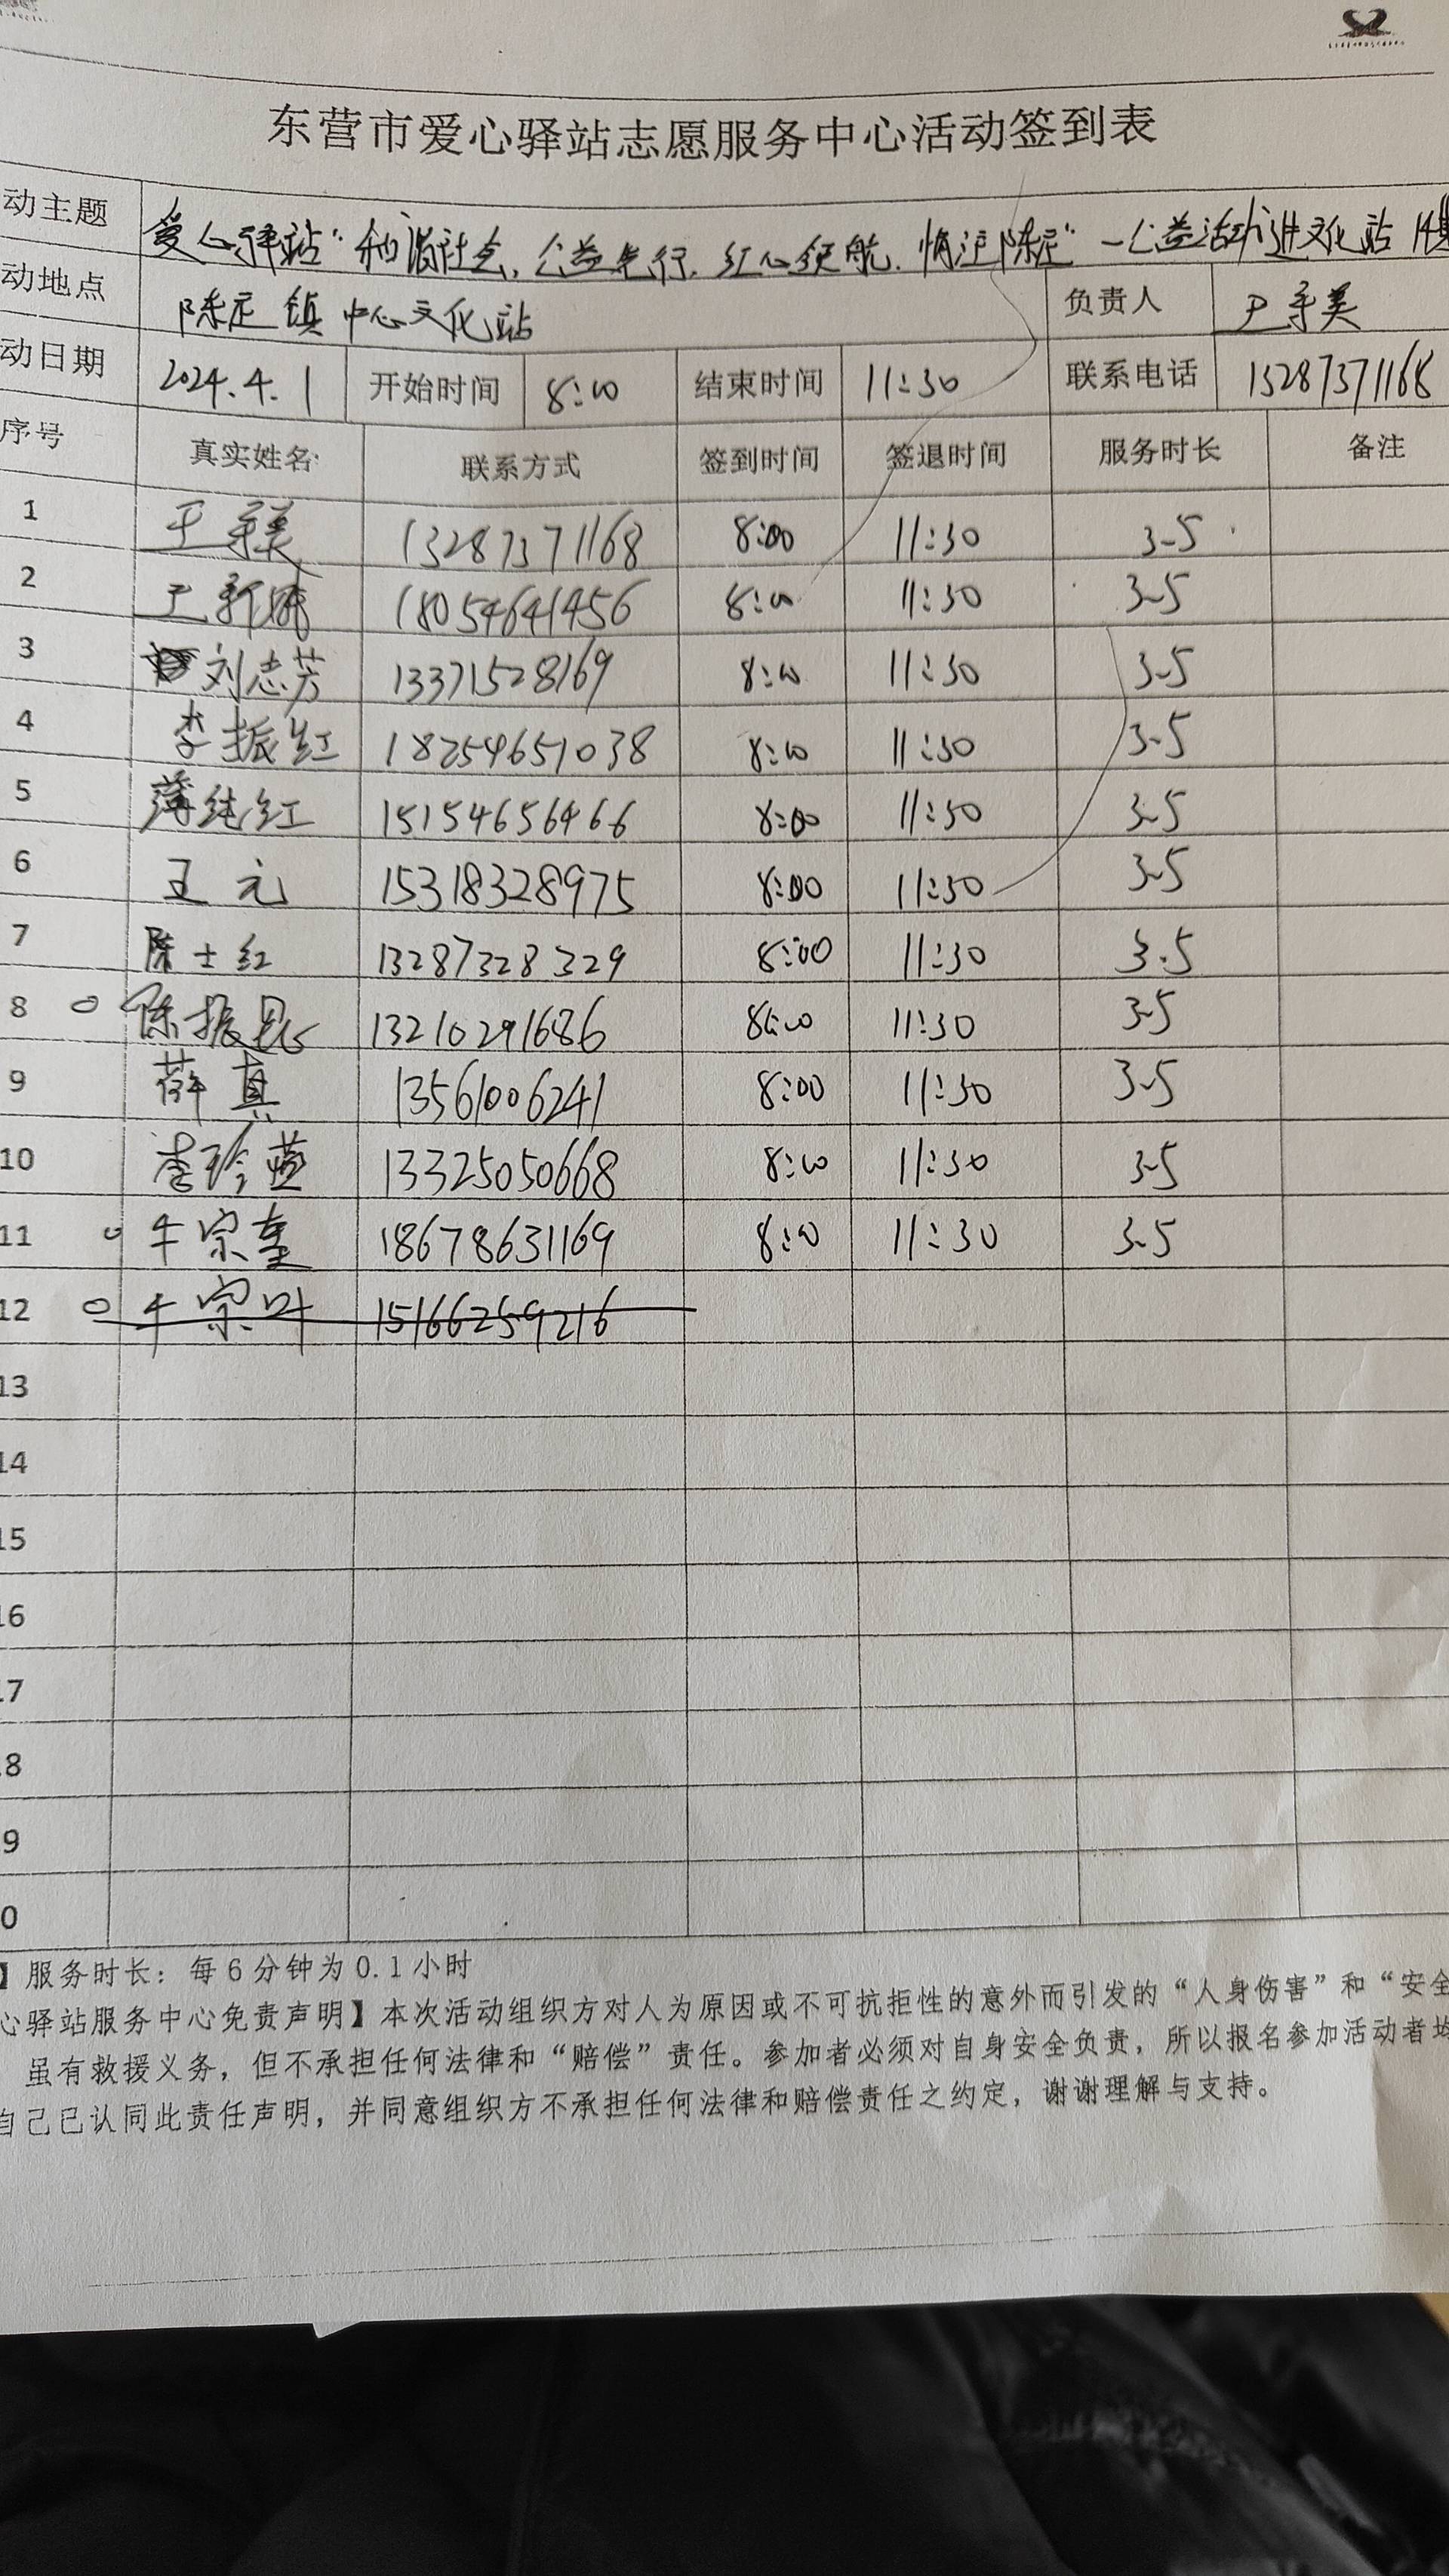 东营市爱心驿站志愿服务中心活动签到表
动主题 爱心驿站“和谐社会，公益先行，红心领航，情注陈庄”—公益活动进文化站
动地点 陈庄镇中心文化站 负责人
动日期 2024.4.1 开始时间 8:00 结束时间 11:30 联系电话 13287371168
序号 真实姓名 联系方式 签到时间 签退时间 服务时长 备注
1 13287371168 8:00 11:30 3.5
2 18054641456 8:00 11:30 3.5
3 刘志芳 13371528169 8:00 11:30 3.5
4 李振红 18254651038 8:00 11:30 3.5
5 薄纯红 15154656466 8:00 11:30 3.5
6 王元 15318328975 8:00 11:30 3.5
7 陈士红 13287328329 8:00 11:30 3.5
8 陈振 13210291686 8:00 11:30 3.5
9 薛真 13561006241 8:00 11:30 3.5
10 李玲燕 13325050668 8:00 11:30 3.5
11 牛宗奎 18678631169 8:00 11:30 3.5
12 牛宗叶 15166259216
13
14
15
16
17
18
19
20
】服务时长：每6分钟为0.1小时
心驿站服务中心免责声明】本次活动组织方对人为原因或不可抗拒性的意外而引发的“人身伤害”和“安全
虽有救援义务，但不承担任何法律和“赔偿”责任。参加者必须对自身安全负责，所以报名参加活动者均
自己已认同此责任声明，并同意组织方不承担任何法律和赔偿责任之约定，谢谢理解与支持。